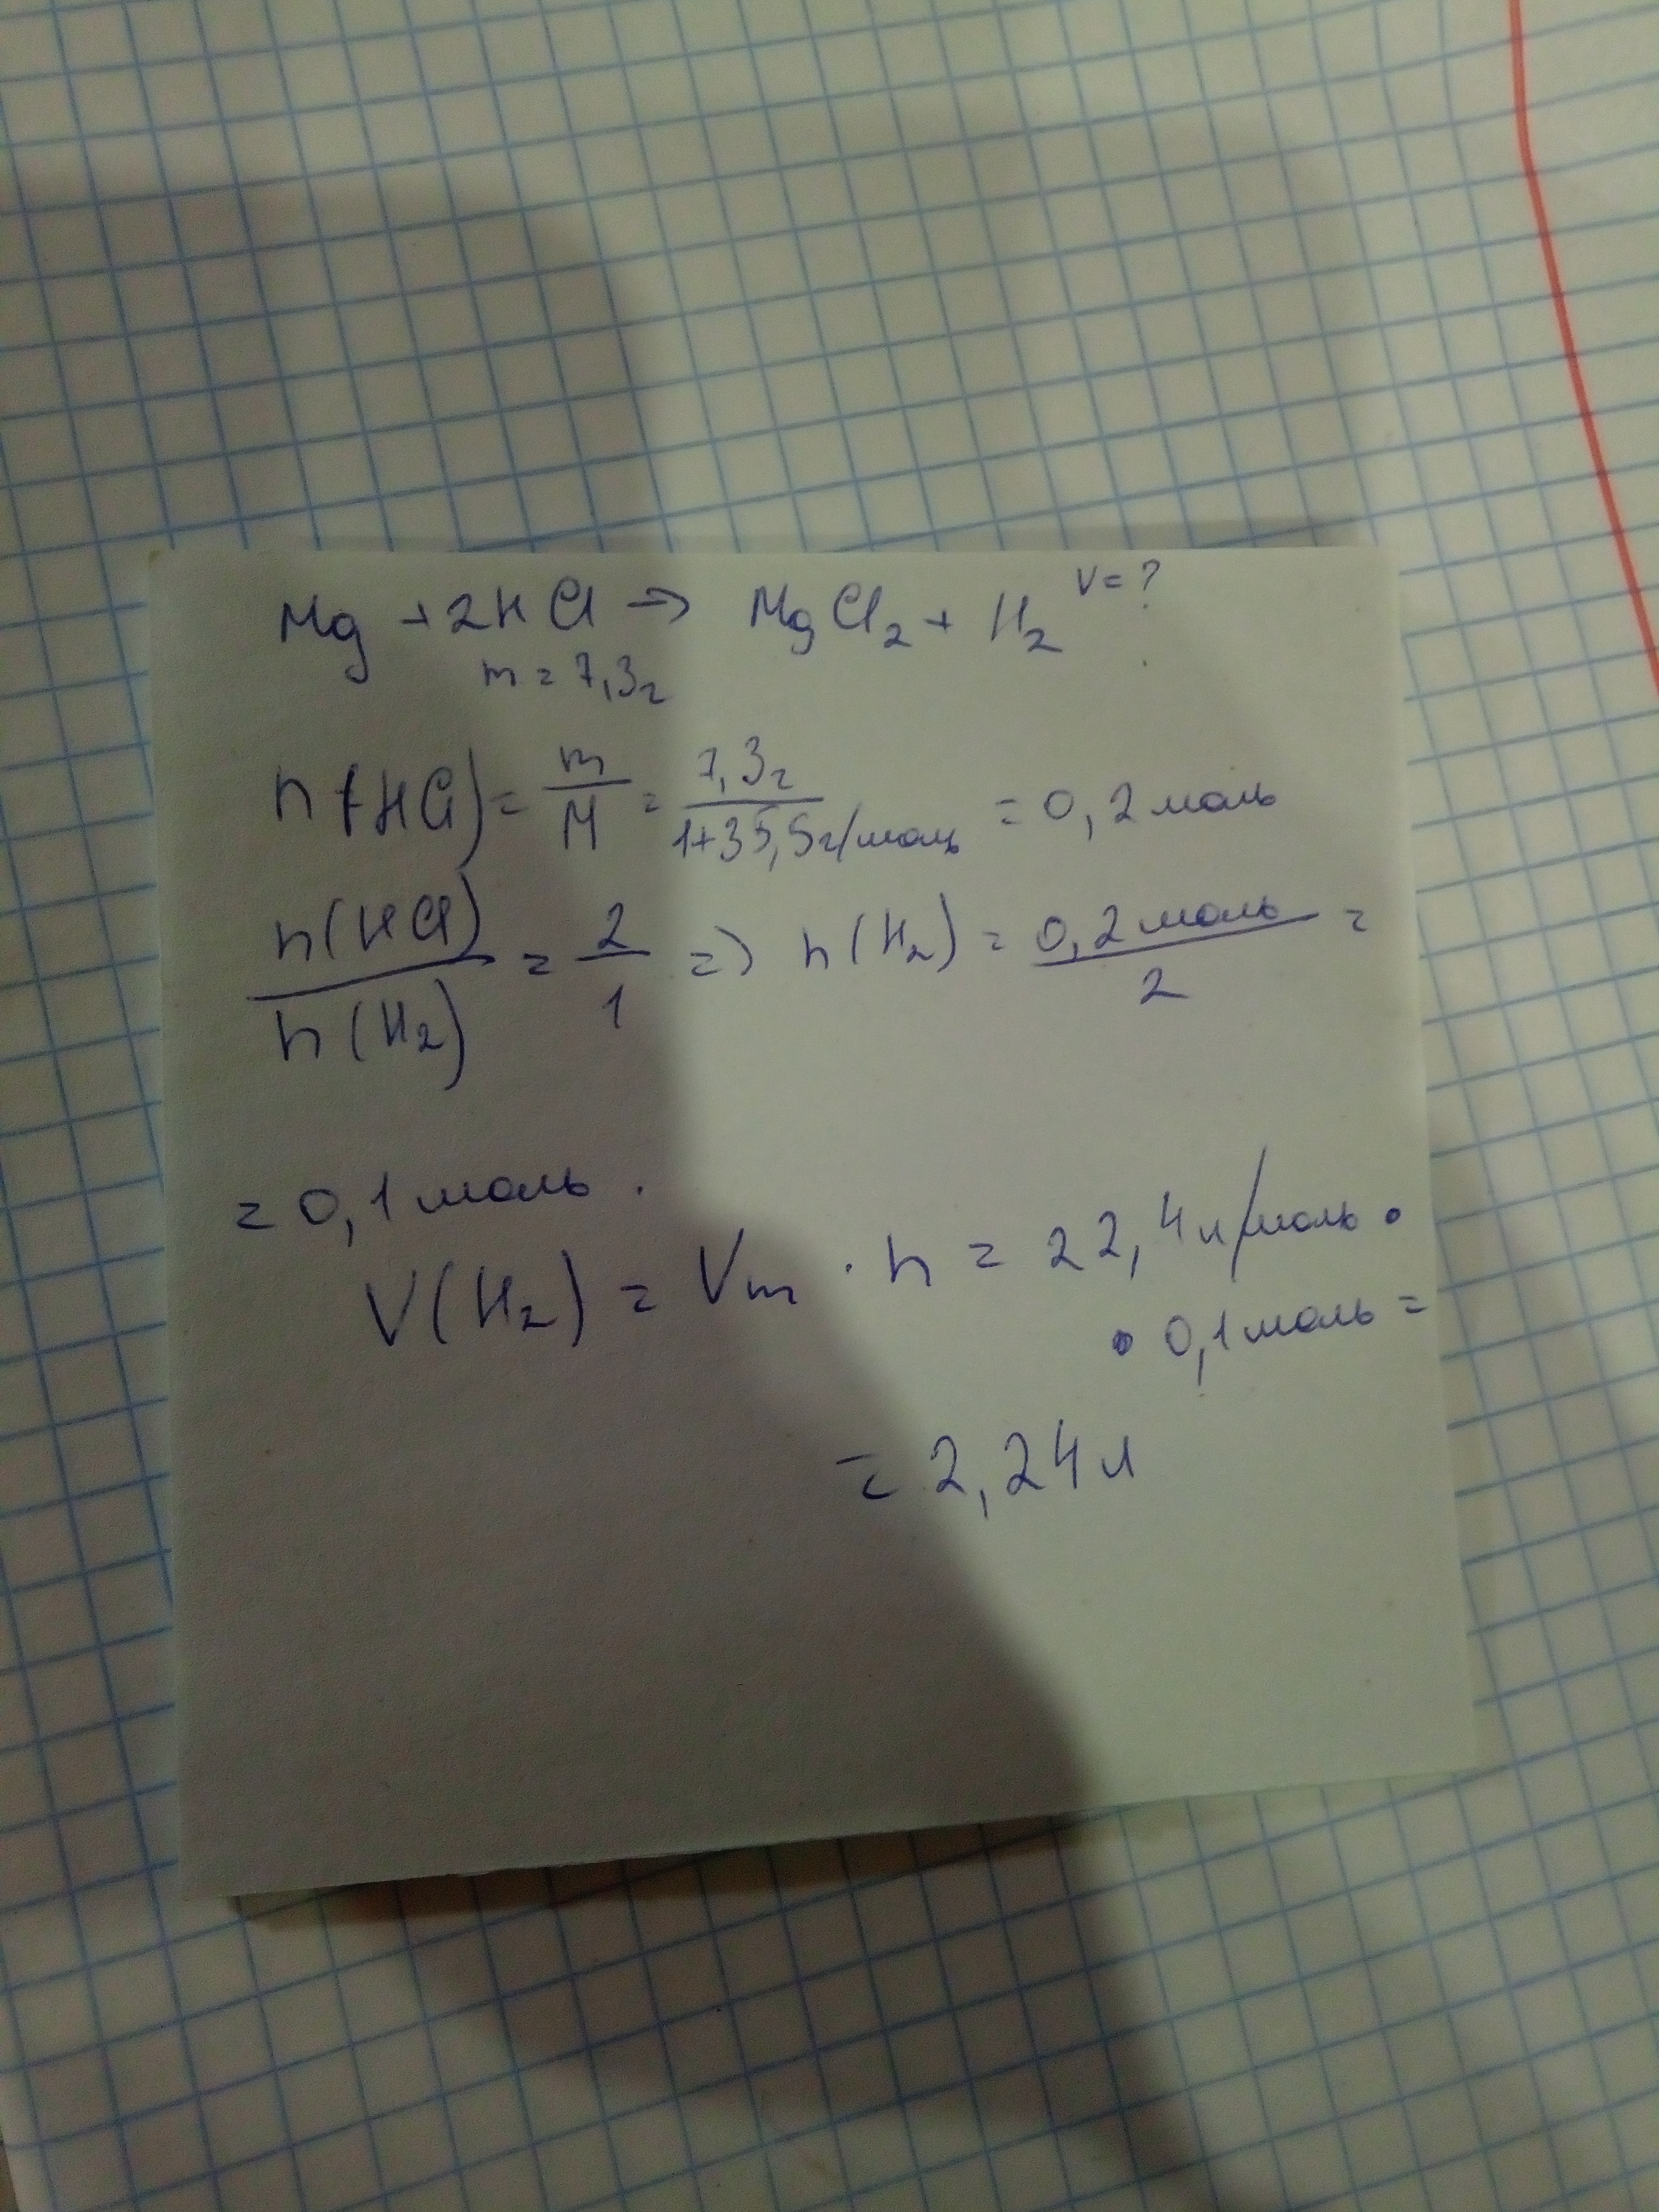 Mg + 2HCl → MgCl₂ + H₂ V=?
m = 7,3г
n(HCl) = m/M = 7,3г/1+35,5г/моль = 0,2 моль
n(HCl)/n(H₂) = 2/1 => n(H₂) = 0,2 моль/2 =
= 0,1 моль.
V(H₂) = Vm · n = 22,4 л/моль ·
· 0,1 моль =
= 2,24 л